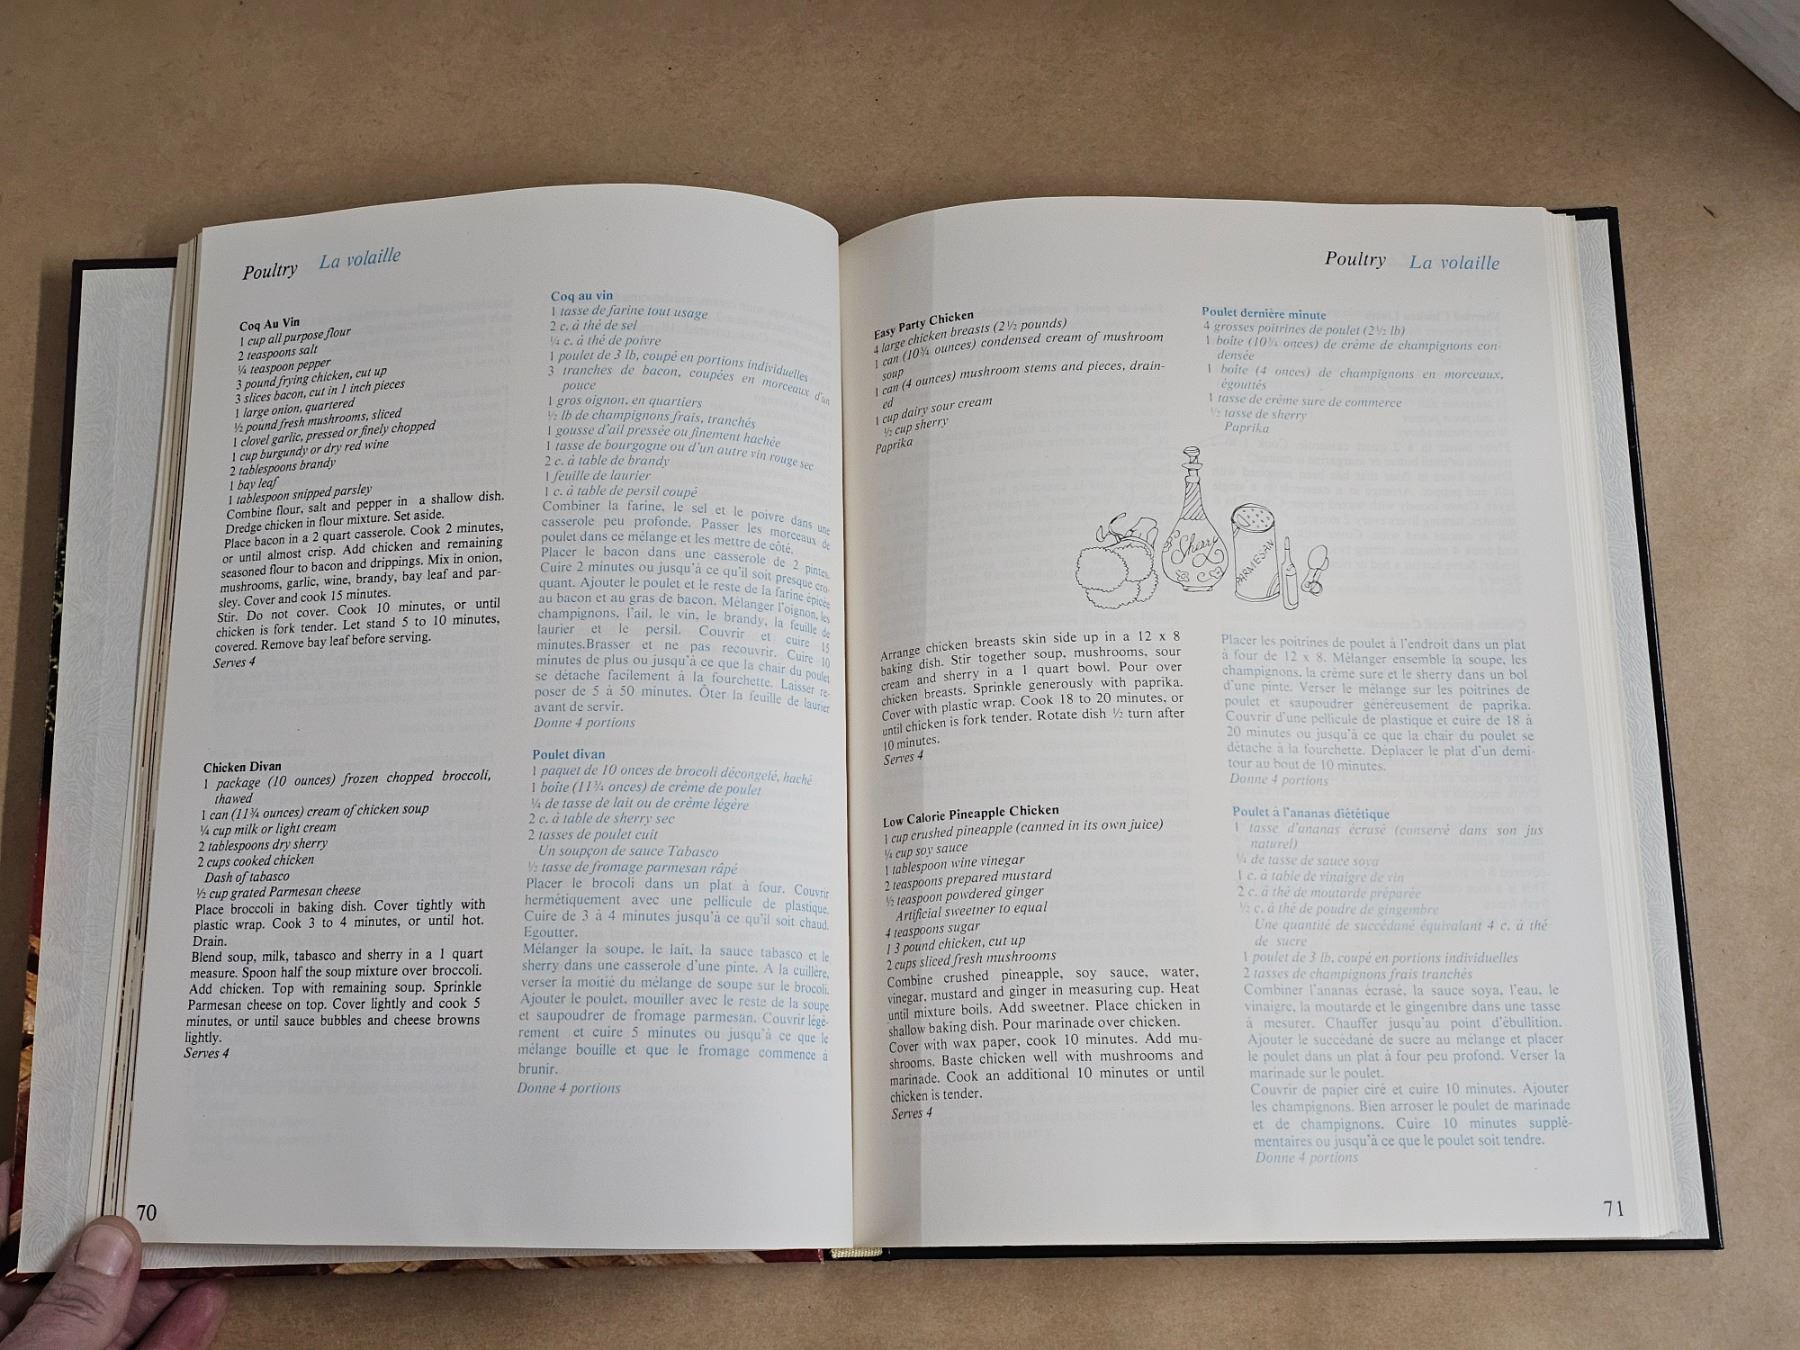 Poultry La volaille
Coq Au Vin
1 cup all purpose flour
2 teaspoons salt
¼ teaspoon pepper
3 pound frying chicken, cut up
3 slices bacon, cut in 1 inch pieces
1 large onion, quartered
½ pound fresh mushrooms, sliced
1 clovel garlic, pressed or finely chopped
1 cup burgundy or dry red wine
2 tablespoons brandy
1 bay leaf
1 tablespoon snipped parsley
Combine flour, salt and pepper in a shallow dish.
Dredge chicken in flour mixture. Set aside.
Place bacon in a 2 quart casserole. Cook 2 minutes,
or until almost crisp. Add chicken and remaining
seasoned flour to bacon and drippings. Mix in onion,
mushrooms, garlic, wine, brandy, bay leaf and par-
sley. Cover and cook 15 minutes.
Stir. Do not cover. Cook 10 minutes, or until
chicken is fork tender. Let stand 5 to 10 minutes,
covered. Remove bay leaf before serving.
Serves 4
Chicken Divan
1 package (10 ounces) frozen chopped broccoli,
thawed
1 can (11¾ ounces) cream of chicken soup
¼ cup milk or light cream
2 tablespoons dry sherry
2 cups cooked chicken
Dash of tabasco
½ cup grated Parmesan cheese
Place broccoli in baking dish. Cover tightly with
plastic wrap. Cook 3 to 4 minutes, or until hot.
Drain.
Blend soup, milk, tabasco and sherry in a 1 quart
measure. Spoon half the soup mixture over broccoli.
Add chicken. Top with remaining soup. Sprinkle
Parmesan cheese on top. Cover lightly and cook 5
minutes, or until sauce bubbles and cheese browns
lightly.
Serves 4
70
Coq au vin
1 tasse de farine tout usage
2 c. à thé de sel
¼ c. à thé de poivre
1 poulet de 3 lb, coupé en portions individuelles
3 tranches de bacon, coupées en morceaux d'un
pouce
1 gros oignon, en quartiers
½ lb de champignons frais, tranchés
1 gousse d'ail pressée ou finement hachée
1 tasse de bourgogne ou d'un autre vin rouge sec
2 c. à table de brandy
1 feuille de laurier
1 c. à table de persil coupé
Combiner la farine, le sel et le poivre dans une
casserole peu profonde. Passer les morceaux de
poulet dans ce mélange et les mettre de côté.
Placer le bacon dans une casserole de 2 pintes.
Cuire 2 minutes ou jusqu'à ce qu'il soit presque cro-
quant. Ajouter le poulet et le reste de la farine épicée
au bacon et au gras de bacon. Mélanger l'oignon, les
champignons, l'ail, le vin, le brandy, la feuille de
laurier et le persil. Couvrir et cuire 15
minutes.Brasser et ne pas recouvrir. Cuire 10
minutes de plus ou jusqu'à ce que la chair du poulet
se détache facilement à la fourchette. Laisser re-
poser de 5 à 50 minutes. Ôter la feuille de laurier
avant de servir.
Donne 4 portions
Poulet divan
1 paquet de 10 onces de brocoli décongelé, haché
1 boîte (11¾ onces) de crème de poulet
¼ de tasse de lait ou de crème légère
2 c. à table de sherry sec
2 tasses de poulet cuit
Un soupçon de sauce Tabasco
½ tasse de fromage parmesan râpé
Placer le brocoli dans un plat à four. Couvrir
hermétiquement avec une pellicule de plastique.
Cuire de 3 à 4 minutes jusqu'à ce qu'il soit chaud.
Egoutter.
Mélanger la soupe, le lait, la sauce tabasco et le
sherry dans une casserole d'une pinte. A la cuillère,
verser la moitié du mélange de soupe sur le brocoli.
Ajouter le poulet, mouiller avec le reste de la soupe
et saupoudrer de fromage parmesan. Couvrir légè-
rement et cuire 5 minutes ou jusqu'à ce que le
mélange bouille et que le fromage commence à
brunir.
Donne 4 portions
Poultry La volaille
Easy Party Chicken
4 large chicken breasts (2½ pounds)
1 can (10¾ ounces) condensed cream of mushroom
soup
1 can (4 ounces) mushroom stems and pieces, drain-
ed
1 cup dairy sour cream
½ cup sherry
Paprika
Sherry
PARMESAN
Arrange chicken breasts skin side up in a 12 x 8
baking dish. Stir together soup, mushrooms, sour
cream and sherry in a 1 quart bowl. Pour over
chicken breasts. Sprinkle generously with paprika.
Cover with plastic wrap. Cook 18 to 20 minutes, or
until chicken is fork tender. Rotate dish ½ turn after
10 minutes.
Serves 4
Low Calorie Pineapple Chicken
1 cup crushed pineapple (canned in its own juice)
¼ cup soy sauce
1 tablespoon wine vinegar
2 teaspoons prepared mustard
½ teaspoon powdered ginger
Artificial sweetner to equal
4 teaspoons sugar
1 3 pound chicken, cut up
2 cups sliced fresh mushrooms
Combine crushed pineapple, soy sauce, water,
vinegar, mustard and ginger in measuring cup. Heat
until mixture boils. Add sweetner. Place chicken in
shallow baking dish. Pour marinade over chicken.
Cover with wax paper, cook 10 minutes. Add mu-
shrooms. Baste chicken well with mushrooms and
marinade. Cook an additional 10 minutes or until
chicken is tender.
Serves 4
Poulet dernière minute
4 grosses poitrines de poulet (2½ lb)
1 boîte (10¾ onces) de crème de champignons con-
densée
1 boîte (4 onces) de champignons en morceaux,
égouttés
1 tasse de crème sure de commerce
½ tasse de sherry
Paprika
Placer les poitrines de poulet à l'endroit dans un plat
à four de 12 x 8. Mélanger ensemble la soupe, les
champignons, la crème sure et le sherry dans un bol
d'une pinte. Verser le mélange sur les poitrines de
poulet et saupoudrer généreusement de paprika.
Couvrir d'une pellicule de plastique et cuire de 18 à
20 minutes ou jusqu'à ce que la chair du poulet se
détache à la fourchette. Déplacer le plat d'un demi-
tour au bout de 10 minutes.
Donne 4 portions
Poulet à l'ananas diététique
1 tasse d'ananas écrasé (conservé dans son jus
naturel)
¼ de tasse de sauce soya
1 c. à table de vinaigre de vin
2 c. à thé de moutarde préparée
½ c. à thé de poudre de gingembre
Une quantité de succédané équivalant 4 c. à thé
de sucre
1 poulet de 3 lb, coupé en portions individuelles
2 tasses de champignons frais tranchés
Combiner l'ananas écrasé, la sauce soya, l'eau, le
vinaigre, la moutarde et le gingembre dans une tasse
à mesurer. Chauffer jusqu'au point d'ébullition.
Ajouter le succédané de sucre au mélange et placer
le poulet dans un plat à four peu profond. Verser la
marinade sur le poulet.
Couvrir de papier ciré et cuire 10 minutes. Ajouter
les champignons. Bien arroser le poulet de marinade
et de champignons. Cuire 10 minutes supplé-
mentaires ou jusqu'à ce que le poulet soit tendre.
Donne 4 portions
71